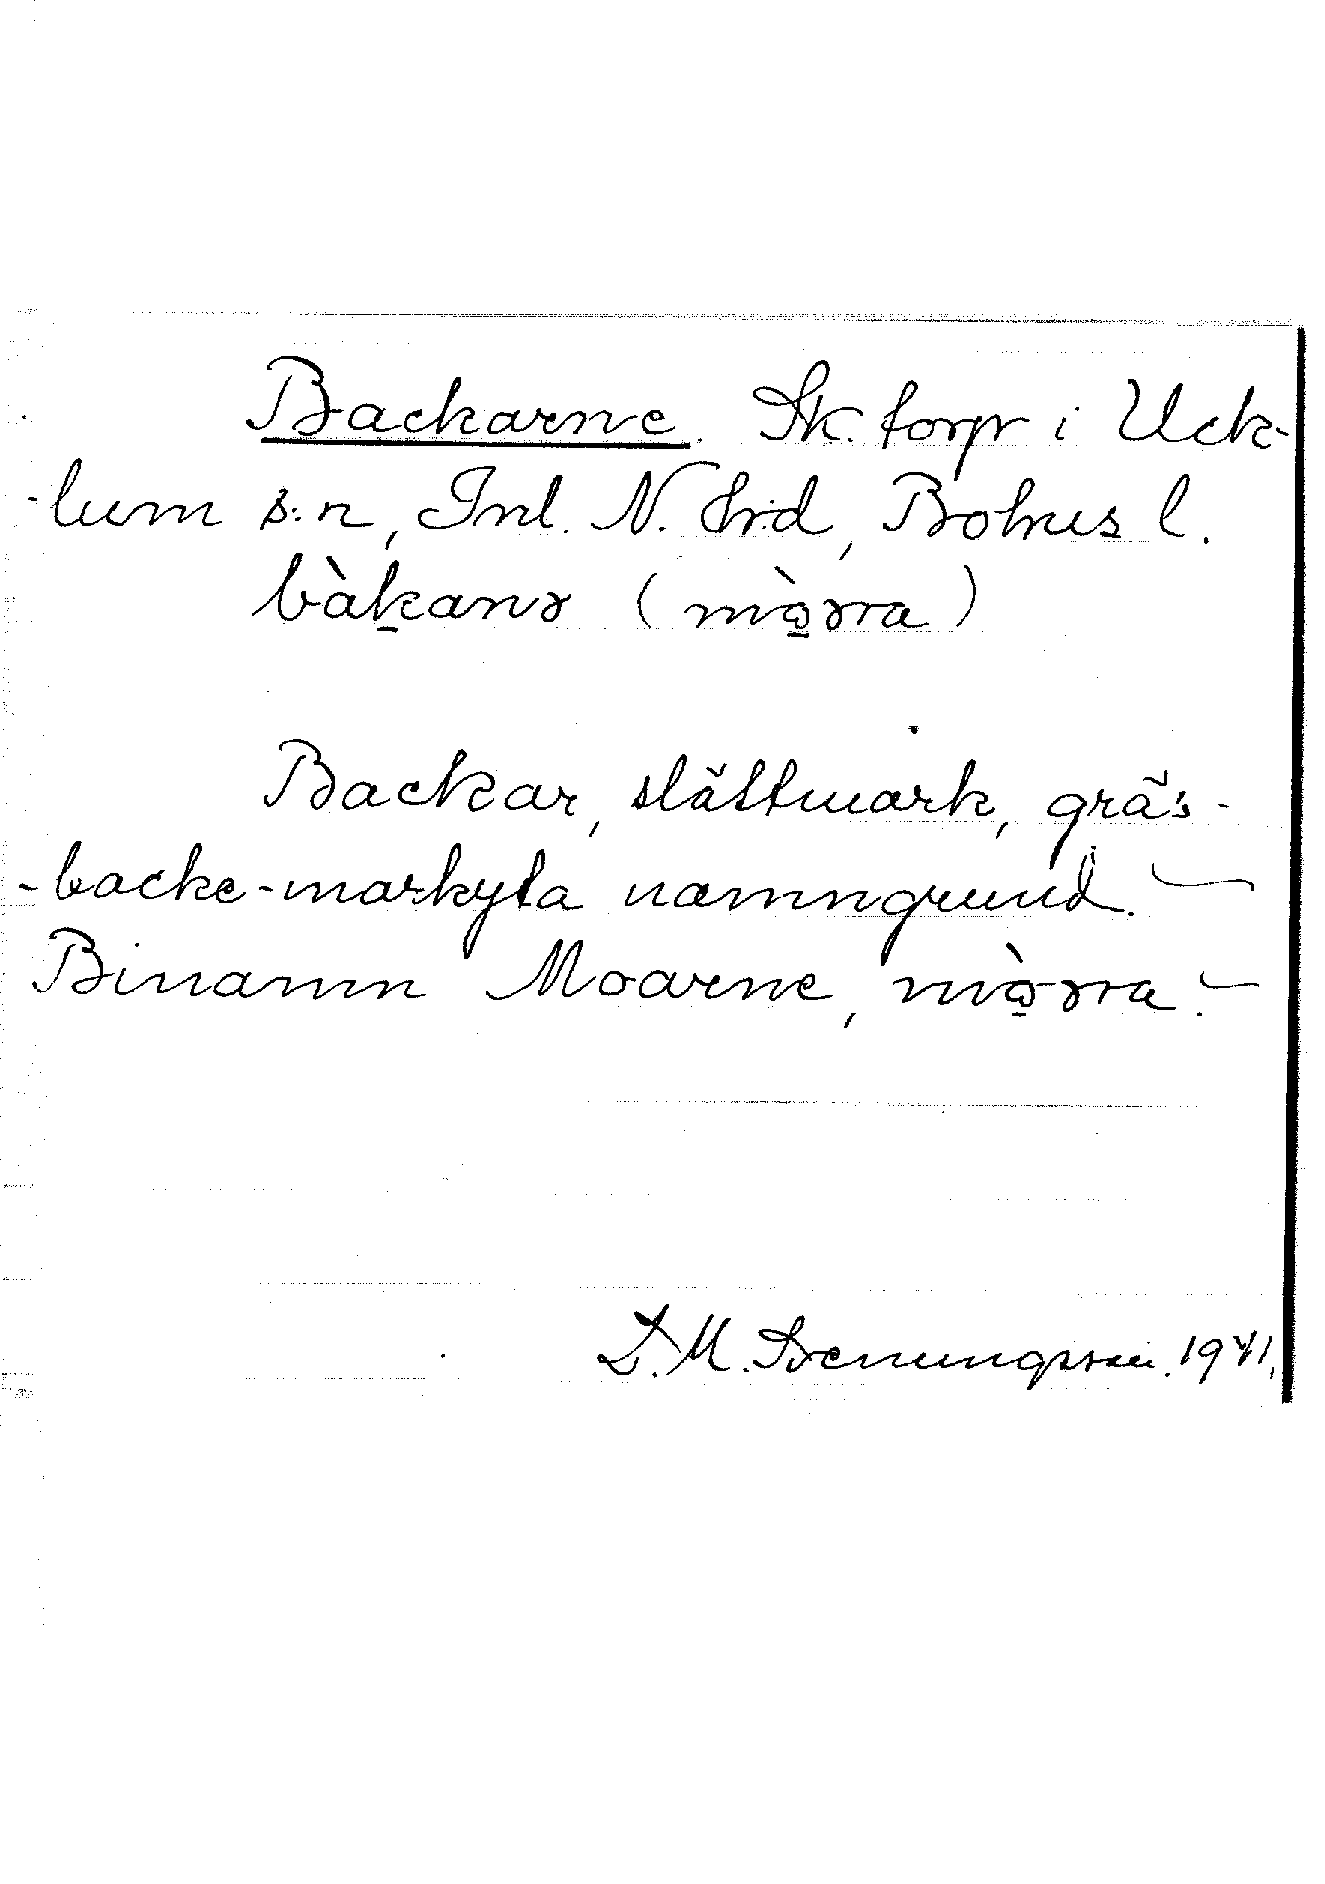 Backarne. Sk. torp i Uck-
-lum s:n, Inl. N. Hrd, Bohus l.
bàkanɤ (mɷ̀ɤra)
Backar, slåttmark, gräs-
-backe-markyta namngrund. —
Binamn Moarne, mɷ̀ɤra. —
D. M. 1941.